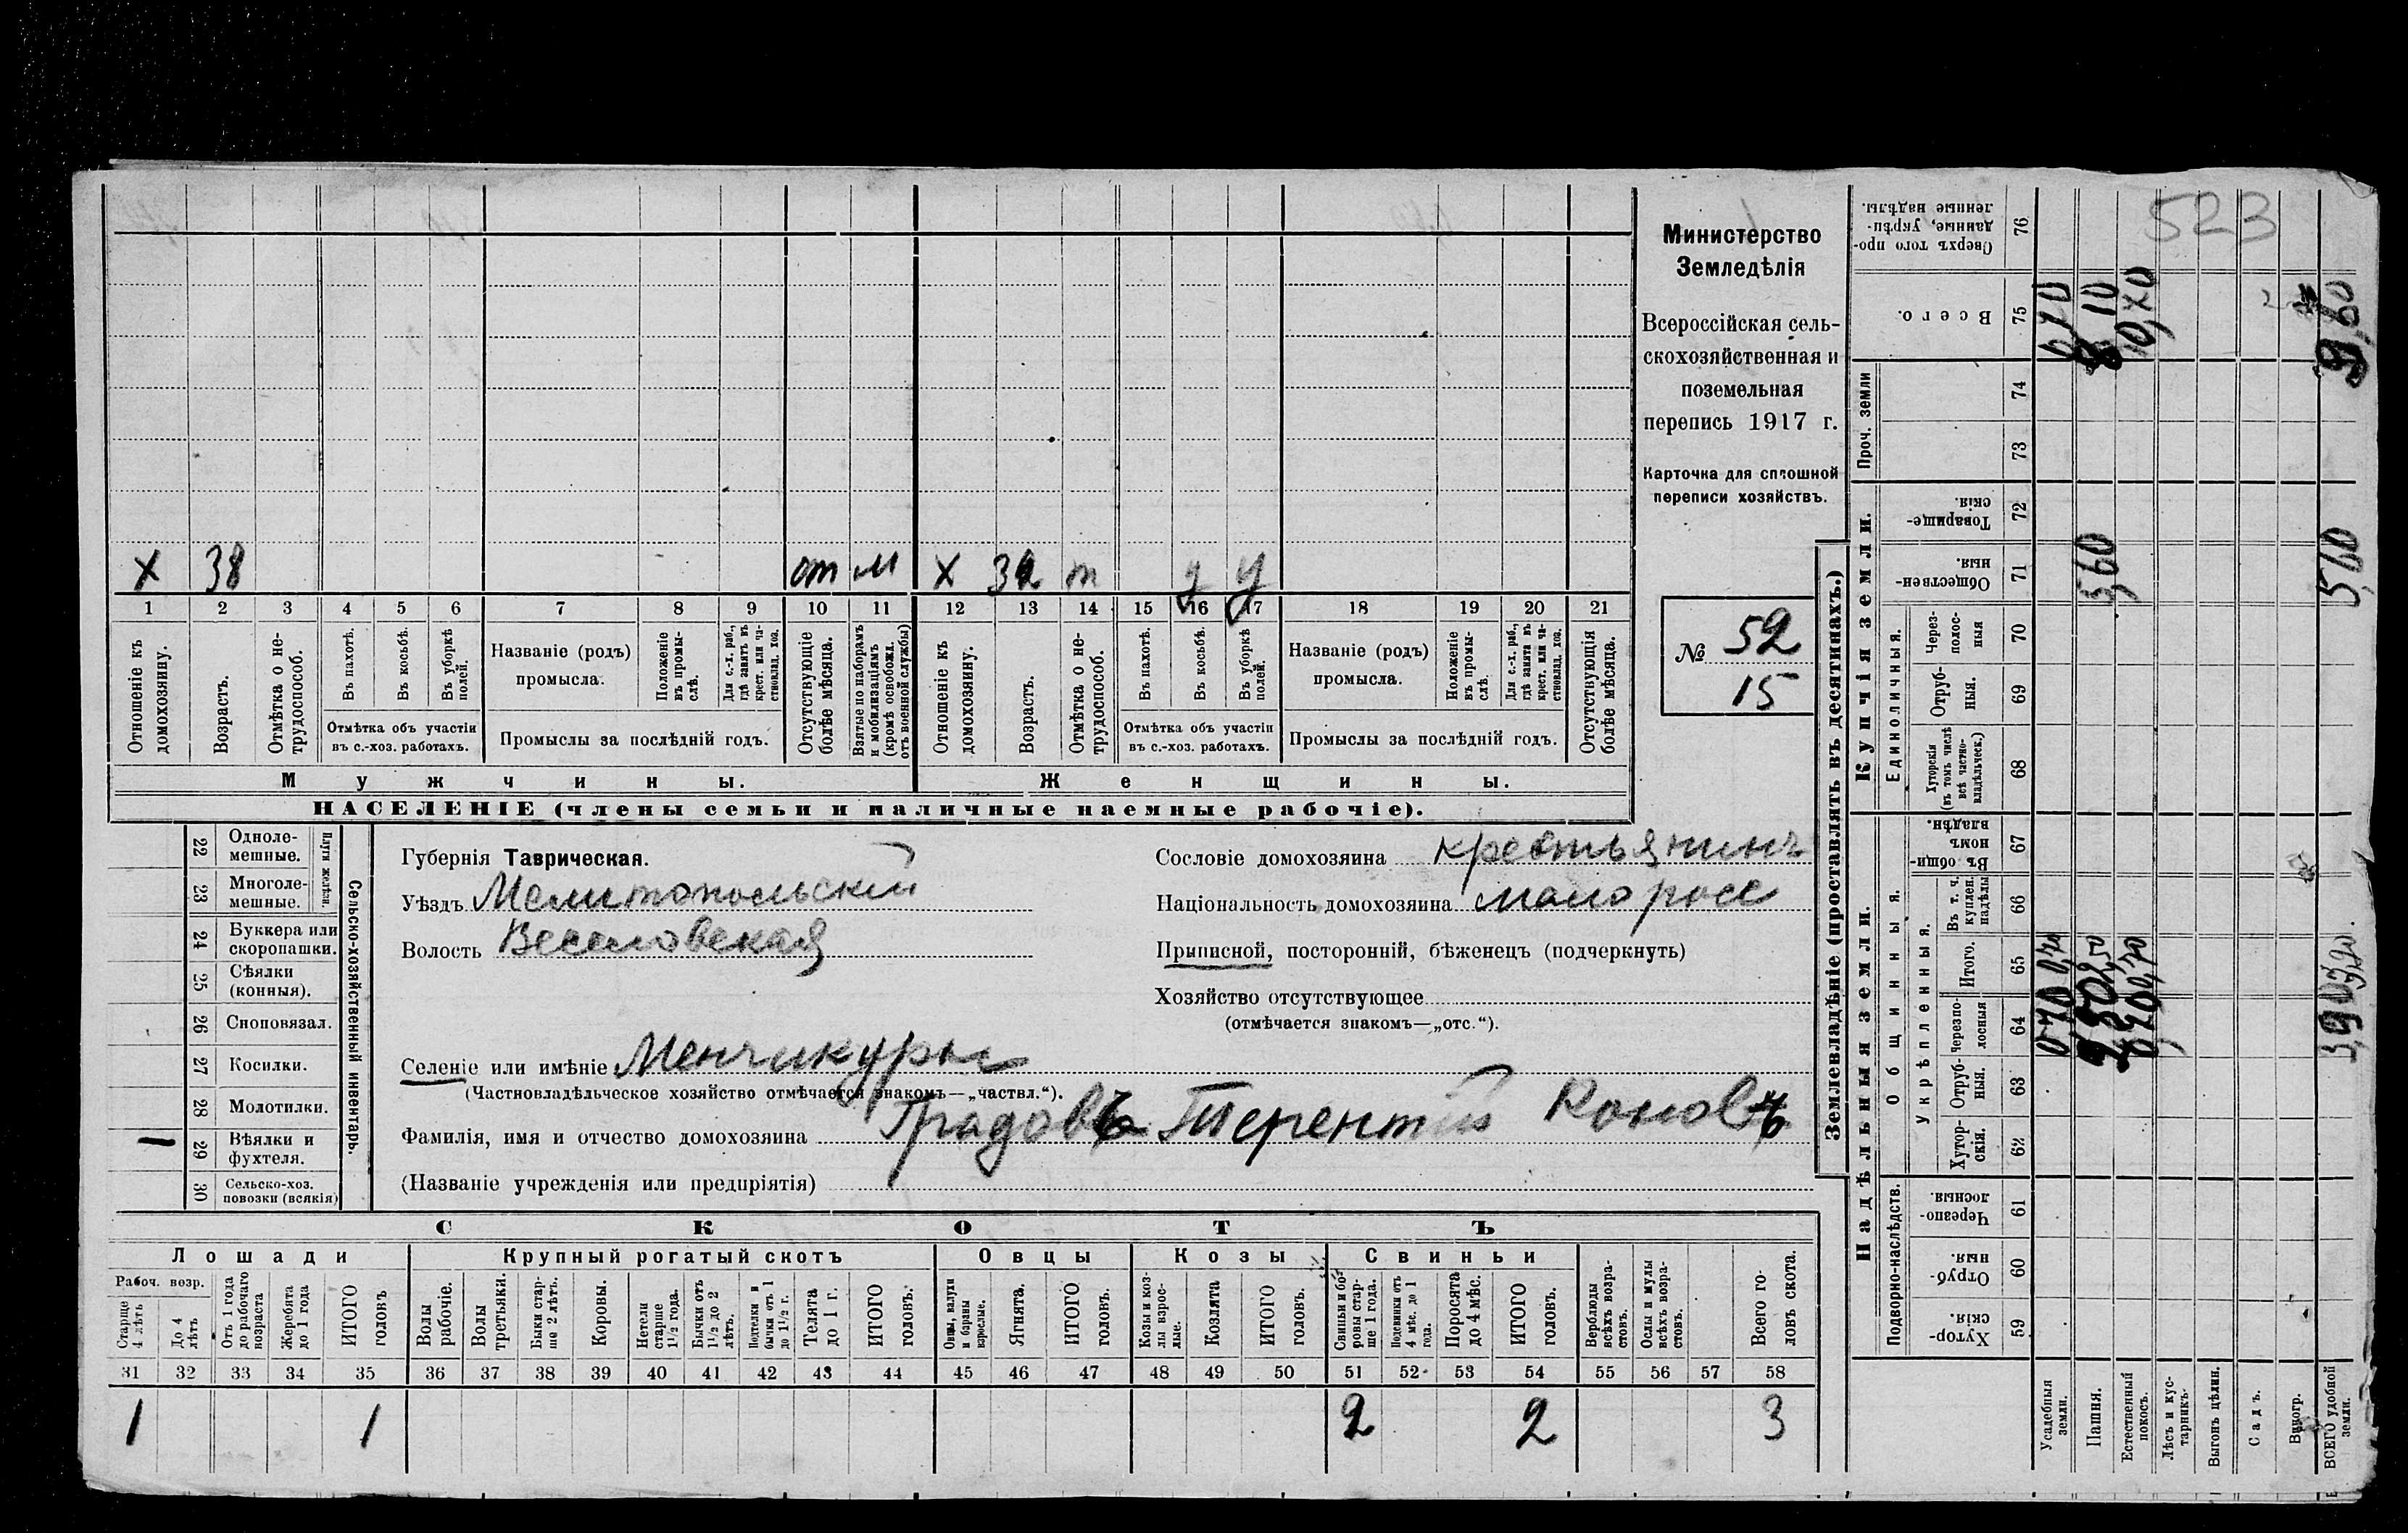 Министерство
Земледѣлія
Всероссійская сель-
скохозяйственная и
поземельная
перепись 1917 г.
Карточка для сплошной
переписи хозяйствъ.
№ 52
15
х 38 от м х т у у
1 2 3 4 5 6 7 8 9 10 11 12 13 14 15 16 17 18 19 20 21
Отношеніе къ домохозяину.
Возрастъ.
Отмѣтка о не-трудоспособ.
Въ пахотѣ.
Въ косьбѣ.
Въ уборкѣ полей.
Отмѣтка объ участіи
въ с.-хоз. работахъ.
Названіе (родъ)
промысла.
Положеніе въ промы-слѣ.
Для с.-х. раб., гдѣ занятъ въ крест. или ча-стновлад. хоз.
Промыслы за послѣдній годъ.
Отсутствующіе болѣе мѣсяца.
Взятые по наборамъ и мобилизаціямъ (кромѣ освобожд. отъ военной службы)
Отношеніе къ домохозяину.
Возрастъ.
Отмѣтка о не-трудоспособ.
Въ пахотѣ.
Въ косьбѣ.
Въ уборкѣ полей.
Отмѣтка объ участіи
въ с.-хоз. работахъ.
Названіе (родъ)
промысла.
Положеніе въ промы-слѣ.
Для с.-х. раб., гдѣ занята въ крест. или ча-стновлад. хоз.
Промыслы за послѣдній годъ.
Отсутствующія болѣе мѣсяца.
Мужчины.
Женщины.
НАСЕЛЕНІЕ (члены семьи и наличные наемные рабочіе).
Сельско-хозяйственный инвентарь.
Плуги желѣзн.
22 Одноле-
мешные.
23 Многоле-
мешные.
24 Буккера или
скоропашки.
25 Сѣялки
(конныя).
26 Сноповязал.
27 Косилки.
28 Молотилки.
1 29 Вѣялки и
фухтеля.
30 Сельско-хоз.
повозки (всякія)
Губернія Таврическая.
Уѣздъ Мелитопольскій
Волость Веселовская
Сословіе домохозяина крестьянинъ
Національность домохозяина малоросс
Приписной, посторонній, бѣженецъ (подчеркнуть)
Хозяйство отсутствующее
(отмѣчается знакомъ—„отс.“).
Селеніе или имѣніе Менчикуры
(Частновладѣльческое хозяйство отмѣчается знакомъ—„частвл.“).
Фамилія, имя и отчество домохозяина Градовъ Терентій
(Названіе учрежденія или предпріятія)
СКОТЪ
Лошади Крупный рогатый скотъ Овцы Козы Свиньи
Рабоч. возр.
Старше 4 лѣтъ
До 4 лѣтъ
Отъ 1 года до рабочаго возраста
Жеребята до 1 года
ИТОГО головъ
Волы рабочіе.
Волы третьяки.
Быки стар-ше 2 лѣтъ.
Коровы.
Нетели старше 1 1/2 года.
Бычки отъ 1 1/2 до 2 лѣтъ.
Подтелки и бычки отъ 1 до 1 1/2 г.
Телята до 1 г.
ИТОГО головъ.
Овцы, валухи и бараны взрослые.
Ягнята.
ИТОГО головъ.
Козы и коз-лы взрос-лые.
Козлята
ИТОГО головъ.
Свиньи и бо-ровы стар-ше 1 года.
Подсвинки отъ 4 мѣс. до 1 года.
Поросята до 4 мѣс.
ИТОГО головъ.
Верблюды всѣхъ возра-стовъ.
Ослы и мулы всѣхъ возра-стовъ.
Всего го-ловъ скота.
31 32 33 34 35 36 37 38 39 40 41 42 43 44 45 46 47 48 49 50 51 52 53 54 55 56 57 58
1 1 2 2 3
Землевладѣніе (проставлять въ десятинахъ.)
Надѣльныя земли.
Купчія земли.
Проч. земли
Подворно-наслѣдств.
Общинныя.
Укрѣпленныя.
Единоличныя.
Сверхъ того про-данные, укрѣп-ленные надѣлы. 76
Всего. 75
74
73
Товарище-скія. 72
Обществен-ныя. 71
Через-полос-ныя 70
Отруб-ныя. 69
Хуторскія (въ томъ числѣ всѣ частно-владѣльческ.) 68
Въ общи-номъ владѣн. 67
Въ т. ч. куплен. надѣлы 66
Итого. 65
Черезпо-лосныя 64
Отруб-ныя. 63
Хутор-скія. 62
Черезпо-лосныя. 61
Отруб-ныя. 60
Хутор-скія. 59
Усадебныя земли.
Пашня.
Естественный покосъ.
Лѣсъ и кус-тарникъ.
Выгонъ цѣлин.
Садъ.
Виногр.
ВСЕГО удобной земли.
523
5,60
5,60